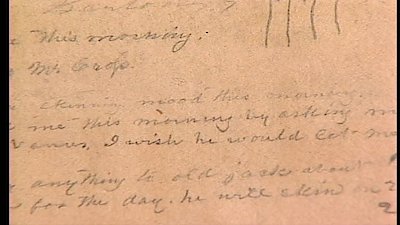 this morning.
Mr Crofs.
skinning mood this morning.
me this morning by asking m
I wish he would let me
anything to old jacks about
for the day. he will skin on 2
2